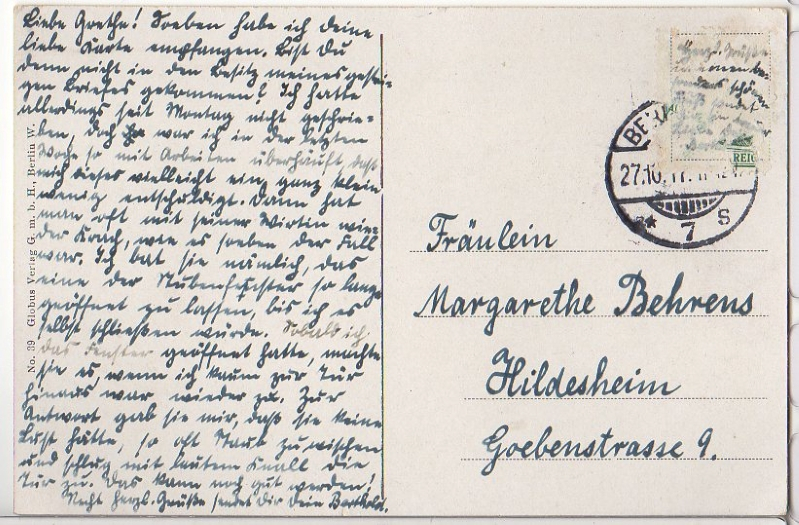 Liebe Grethe! Soeben habe ich deine
liebe Karte empfangen. Bist Du
denn nicht in den Besitz meines gestri-
gen Briefes gekommen? Ich hatte
allerdings seit Montag nicht geschrie-
ben, doch war ich in der letzten
Woche so mit Arbeiten überhäuft, daß
mich dieses vielleicht ein ganz klein
wenig entschuldigt. Dann hat
man oft mit seiner Wirtin wie-
der Krach, wie es soeben der Fall
war. Ich bat sie nämlich, das
eine der Stubenfenster so lange
geöffnet zu lassen, bis ich es
selbst schließen würde. Sobald ich
das Fenster geöffnet hatte, machte
sie es, wenn ich kaum zur Tür
hinaus war wieder zu. Zur
Antwort gab sie mir, daß sie keine
Lust hätte, so oft Staub zu wischen
und schlug mit lautem Knall die
Tür zu. Das kann noch gut werden!
Recht herzl. Grüße sendet Dir Dein Berthold.
No. 39 Globus Verlag G. m. b. H., Berlin W.
Herzl. Grüße
schönen
sendet
REIC
BER
27.10.17. 11-12
* 7 S
Fräulein
Margarethe Behrens
Hildesheim
Goebenstrasse 9.